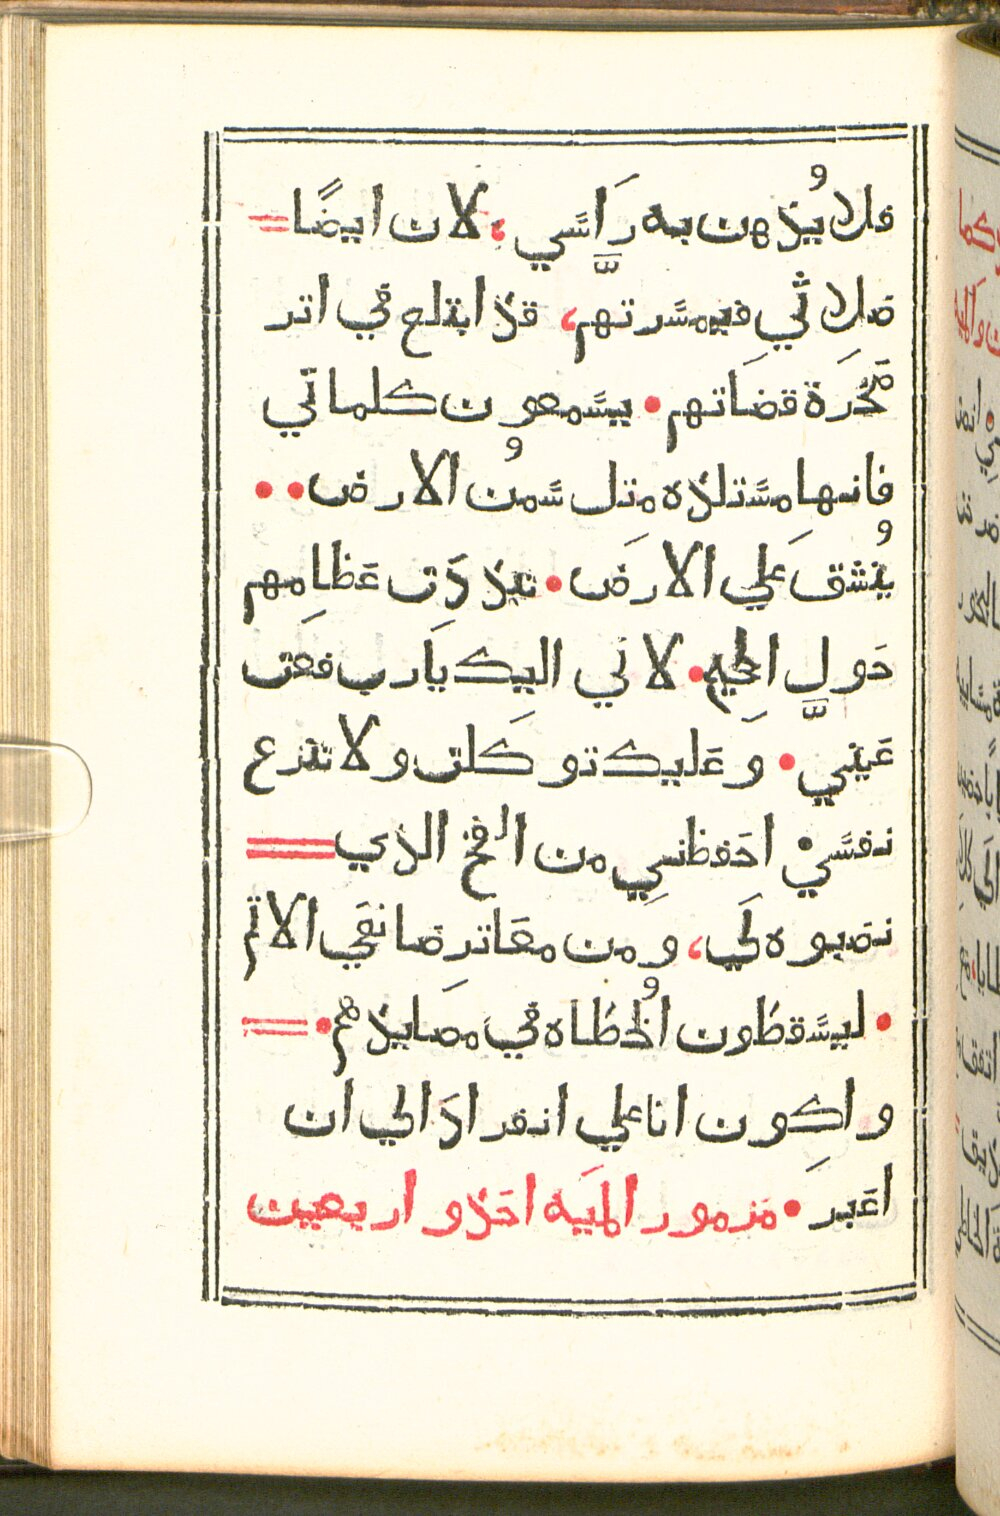 فلا يُدهن به رَاسّي، لان ايضًا
صلاتي فيمسّرتهم، قد ابتلع في اتر
صَخرَة قضَاتهم • يسّمعون كلماتي
فانها مسّتلده متل سّمُن الارض ••
يُنشق عَلي الارَض • تبدّدَت عَظامِهم
حَول الجحيم • لاني اليك يَارب فعت
عَيني • وعَليك توكلت ولا تنزع
نفسّي • احَفظني من الفخ الذي
نصبوه لَي، ومن معَاترِ صانعَي الاتم
• ليسّقطون الخُطاه في مصَايدهم •
واكون انا علي انفرادَ الي ان
اعَبر • مَزمور المَيه احَد و اربعين